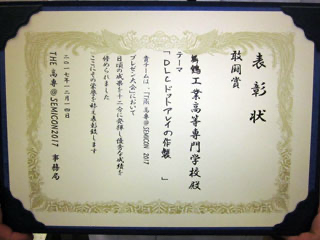 表彰状
敢闘賞
舞鶴工業高等専門学校殿
テーマ
「DLCドットアレイの作製」
貴チームは、「THE 高専@SEMICON 2017
プレゼン大会」において
日頃の成果を十二分に発揮し優秀な成績を
修められました
ここにその栄誉を称え表彰致します
二〇一七年十二月一四日
THE 高専@SEMICON2017 事務局